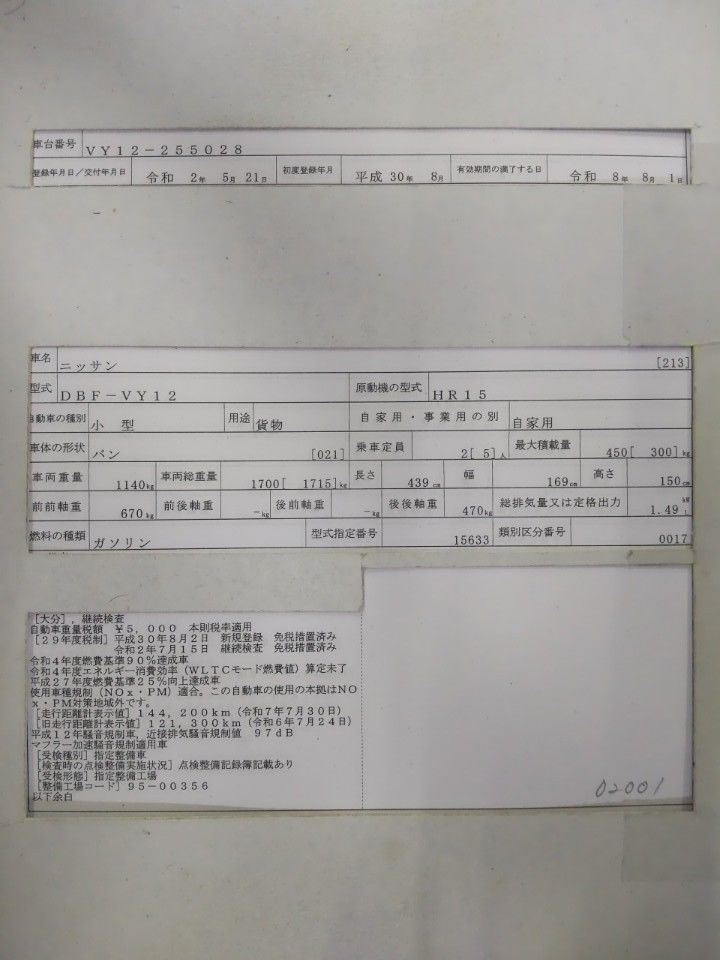 車台番号 VY12-255028
登録年月日/交付年月日 令和 2年 5月 21日 初度登録年月 平成 30年 8月 有効期間の満了する日 令和 8年 8月 1日
車名 ニッサン [213]
型式 DBF-VY12 原動機の型式 HR15
自動車の種別 小 型 用途 貨物 自家用・事業用の別 自家用
車体の形状 バン [021] 乗車定員 2[ 5]人 最大積載量 450[ 300]kg
車両重量 1140kg 車両総重量 1700[ 1715]kg 長さ 439cm 幅 169cm 高さ 150cm
前前軸重 670kg 前後軸重 -kg 後前軸重 -kg 後後軸重 470kg 総排気量又は定格出力 1.49 kW L
燃料の種類 ガソリン 型式指定番号 15633 類別区分番号 0017
[大分],継続検査
自動車重量税額 ¥5,000 本則税率適用
[29年度税制]平成30年8月2日 新規登録 免税措置済み
令和2年7月15日 継続検査 免税措置済み
令和4年度燃費基準90%達成車
令和4年度エネルギー消費効率(WLTCモード燃費値)算定未了
平成27年度燃費基準25%向上達成車
使用車種規制(NOx・PM)適合。この自動車の使用の本拠はNO
x・PM対策地域外です。
[走行距離計表示値]144,200km(令和7年7月30日)
[旧走行距離計表示値]121,300km(令和6年7月24日)
平成12年騒音規制車,近接排気騒音規制値 97dB
マフラー加速騒音規制適用車
[受検種別]指定整備車
[検査時の点検整備実施状況]点検整備記録簿記載あり
[受検形態]指定整備工場
[整備工場コード]95-00356
以下余白
02001